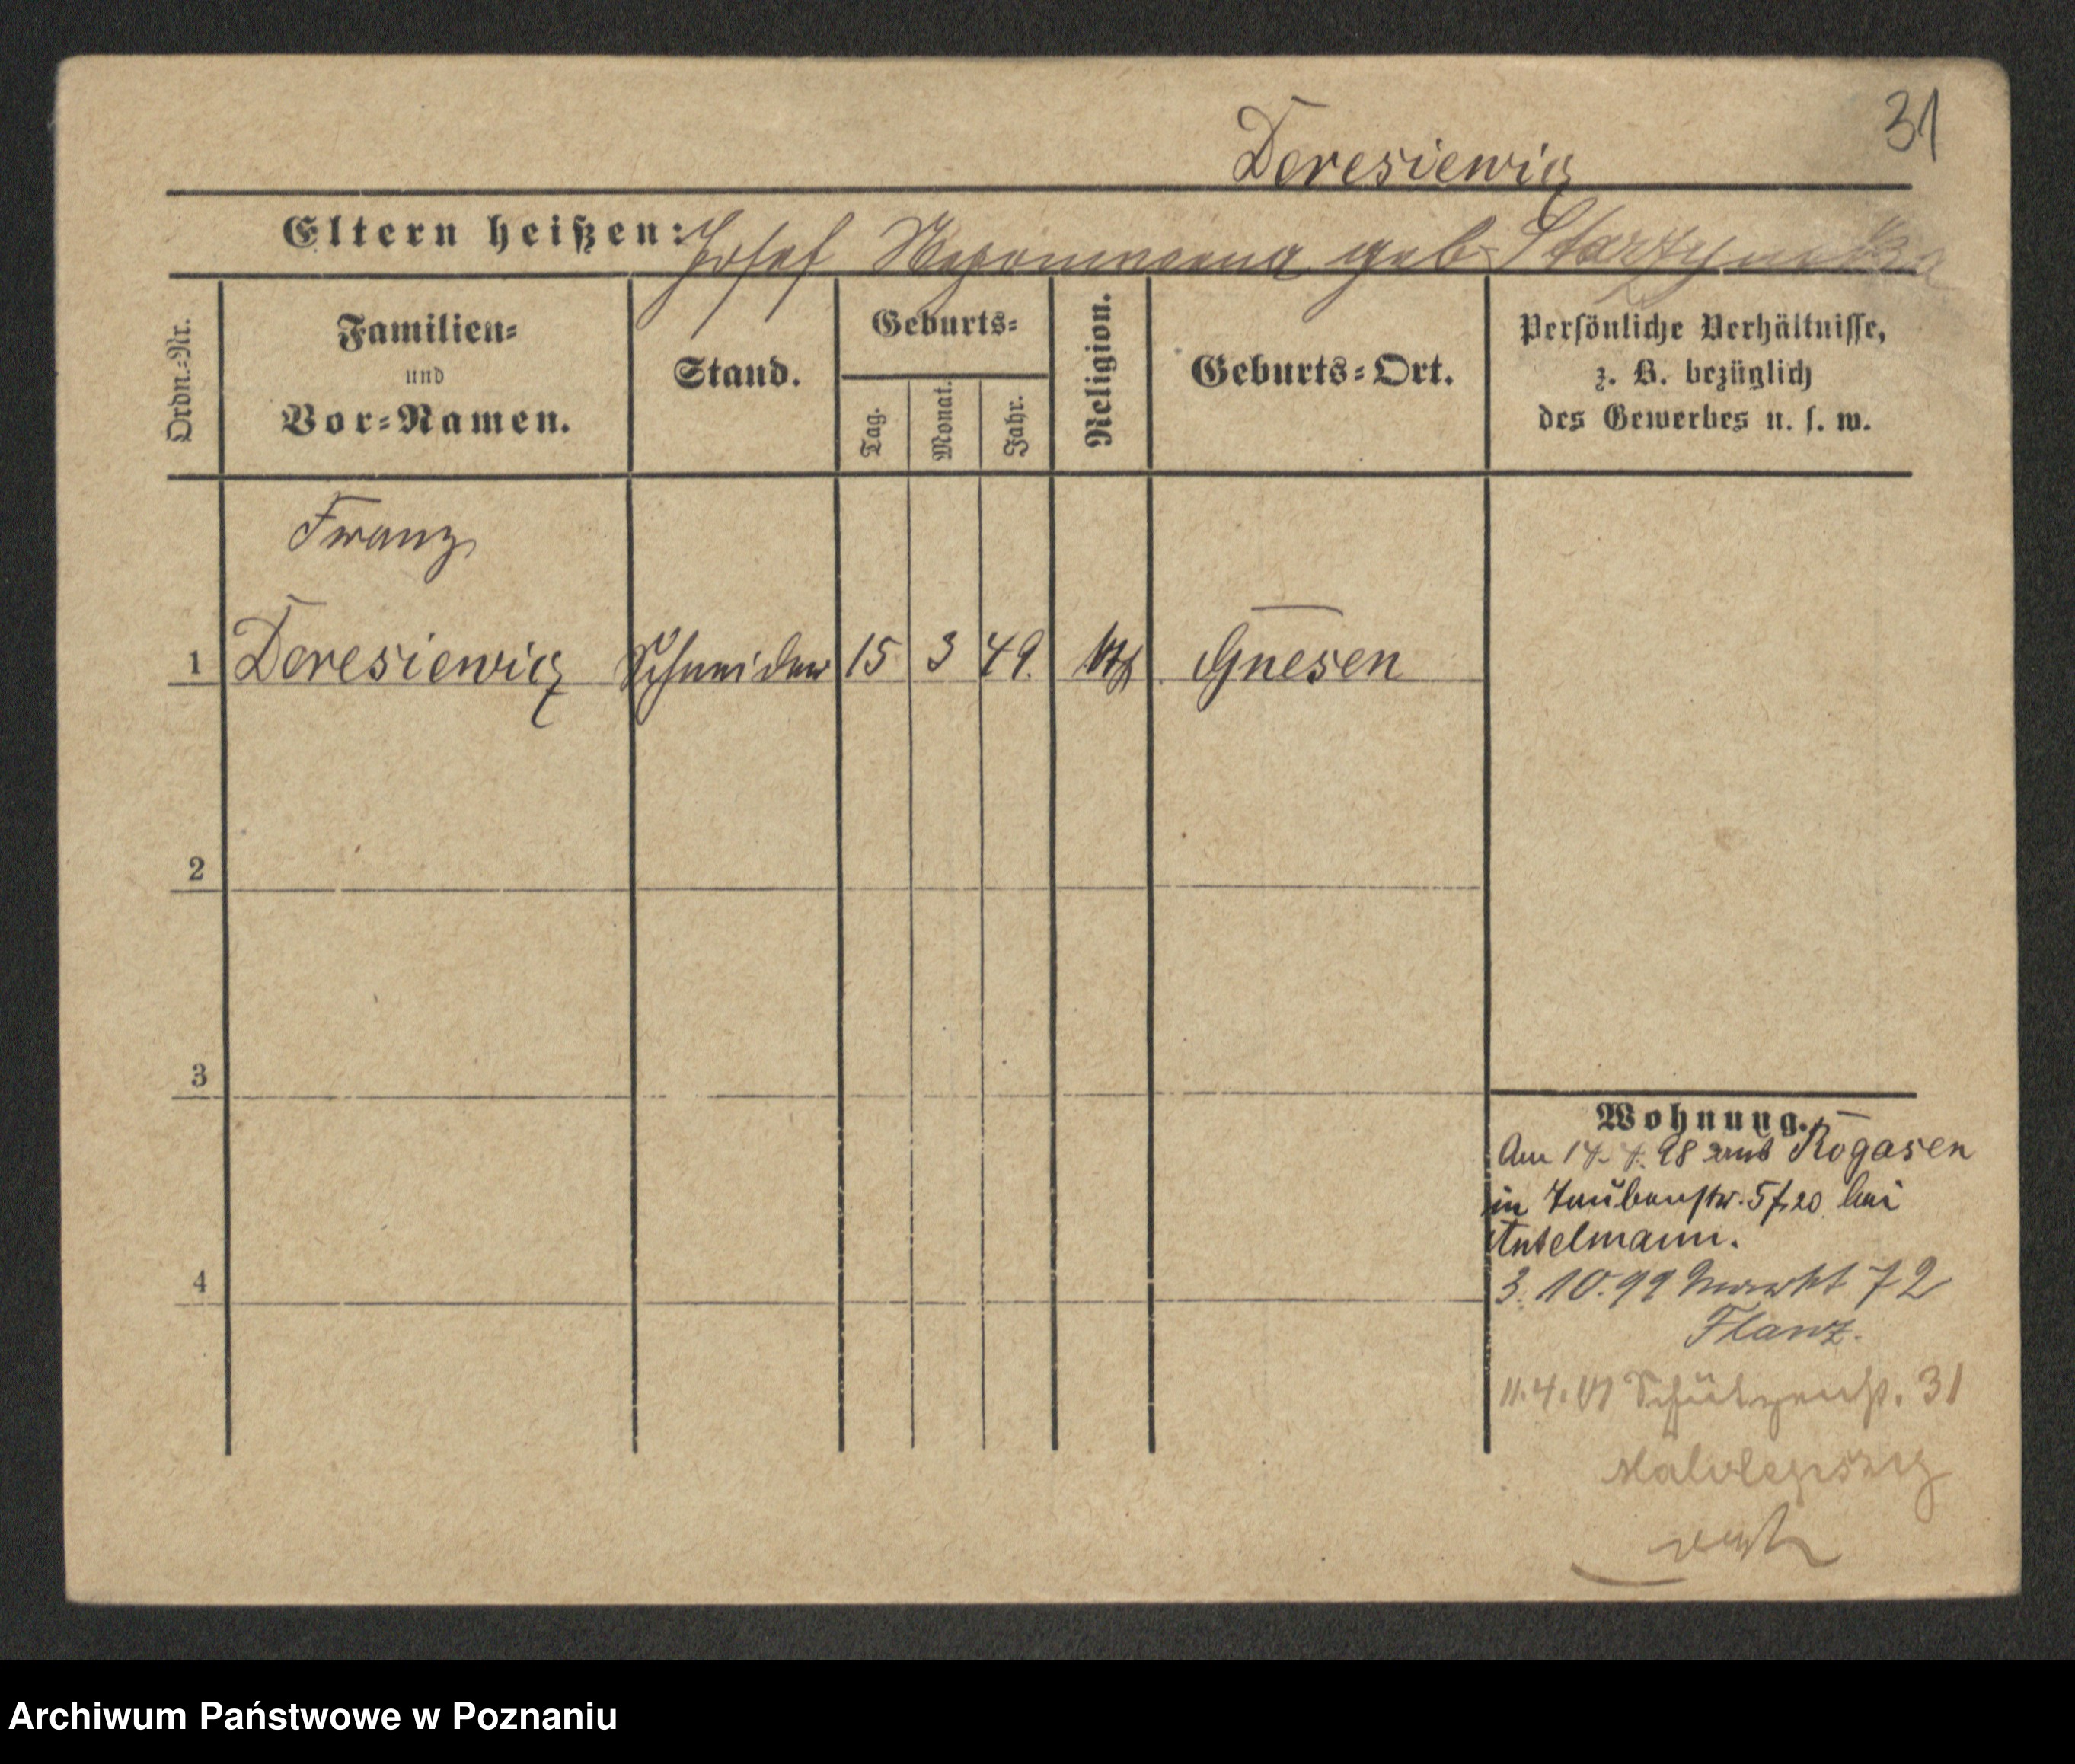 31
Deresiewicz
Eltern heißen: Josef Nepomucena geb Starzynska
Ordn.=Nr.
Familien=
und
Vor=Namen.
Stand.
Geburts=
Tag.
Monat.
Jahr.
Religion.
Geburts=Ort.
Persönliche Verhältnisse,
z. B. bezüglich
des Gewerbes u. s. w.
Franz
1 Deresiewicz Schneider 15 3 49. kth Gnesen
2
3
4
Wohnung.
Am 98 aus Rogasen
in Taubenstr. 5 bei
Antelmann.
3. 10. 99 Markt 72
11. 4. 01 Schützenstr. 31
Archiwum Państwowe w Poznaniu